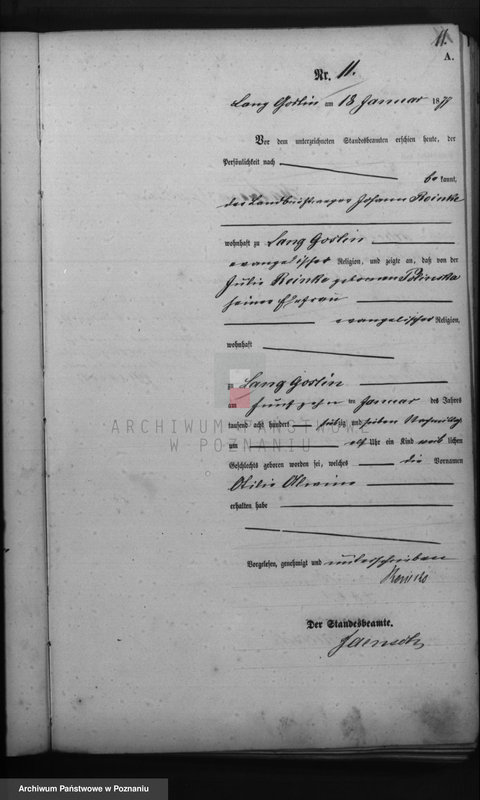 11.
A.
Nr. 11.
Lang Goslin am 18 Januar 1877
Vor dem unterzeichneten Standesbeamten erschien heute, der
Persönlichkeit nach
be kannt,
der Johann Reinke
wohnhaft zu Lang Goslin
evangelischer Religion, und zeigte an, daß von der
Julie Reinke geborenen
seiner Ehefrau
evangelischer Religion,
wohnhaft
zu Lang Goslin
am fünfzehn ten Januar des Jahres
tausend acht hundert siebzig und sieben Nachmittags
um elf Uhr ein Kind weib lichen
Geschlechts geboren worden sei, welches die Vornamen
Alwine
erhalten habe
ARCHIWUM PAŃSTWOWE
W POZNANIU
Vorgelesen, genehmigt und unterschrieben
Der Standesbeamte.
Archiwum Państwowe w Poznaniu